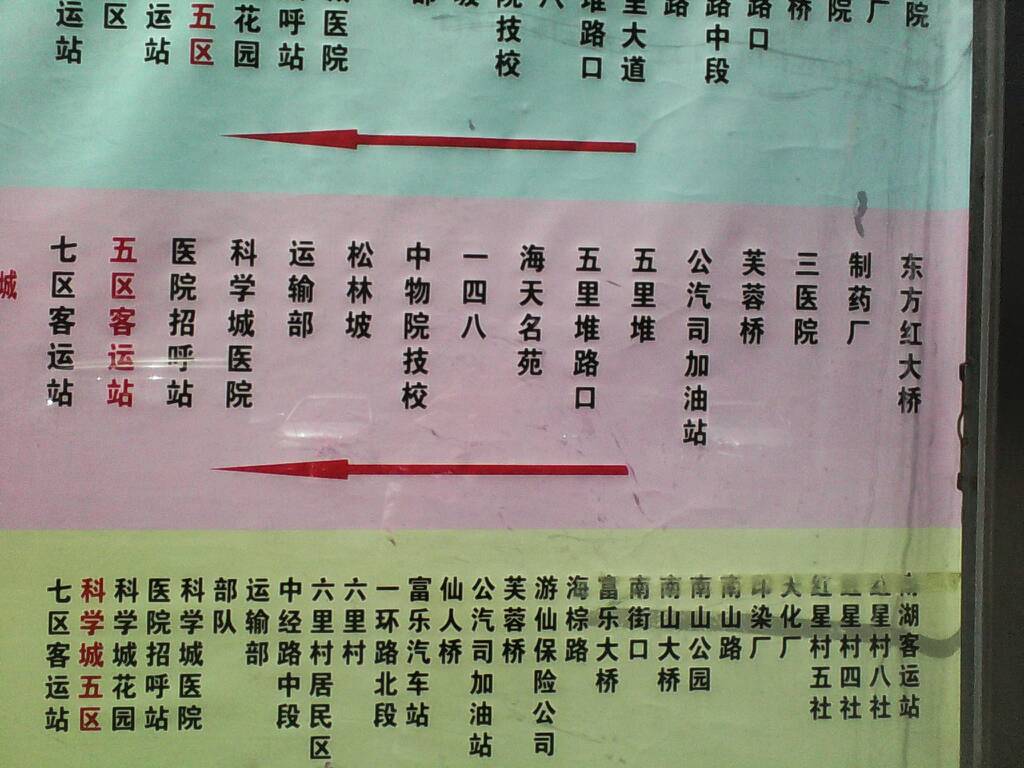 运站
区
运站
五区
花园
呼站
医院
院技校
堆路口
里大道
路
路中段
路口
桥
院
厂
院
城
七区客运站
五区客运站
医院招呼站
科学城医院
运输部
松林坡
中物院技校
一四八
海天名苑
五里堆路口
五里堆
公汽司加油站
芙蓉桥
三医院
制药厂
东方红大桥
七区客运站
科学城五区
科学城花园
医院招呼站
科学城医院
部队
运输部
中经路中段
六里村居民区
六里村
一环路北段
富乐汽车站
仙人桥
公汽司加油站
芙蓉桥
游仙保险公司
海棕路
富乐大桥
南街口
南山大桥
南山公园
南山路
印染厂
大化厂
红星村五社
红星村四社
红星村八社
南湖客运站